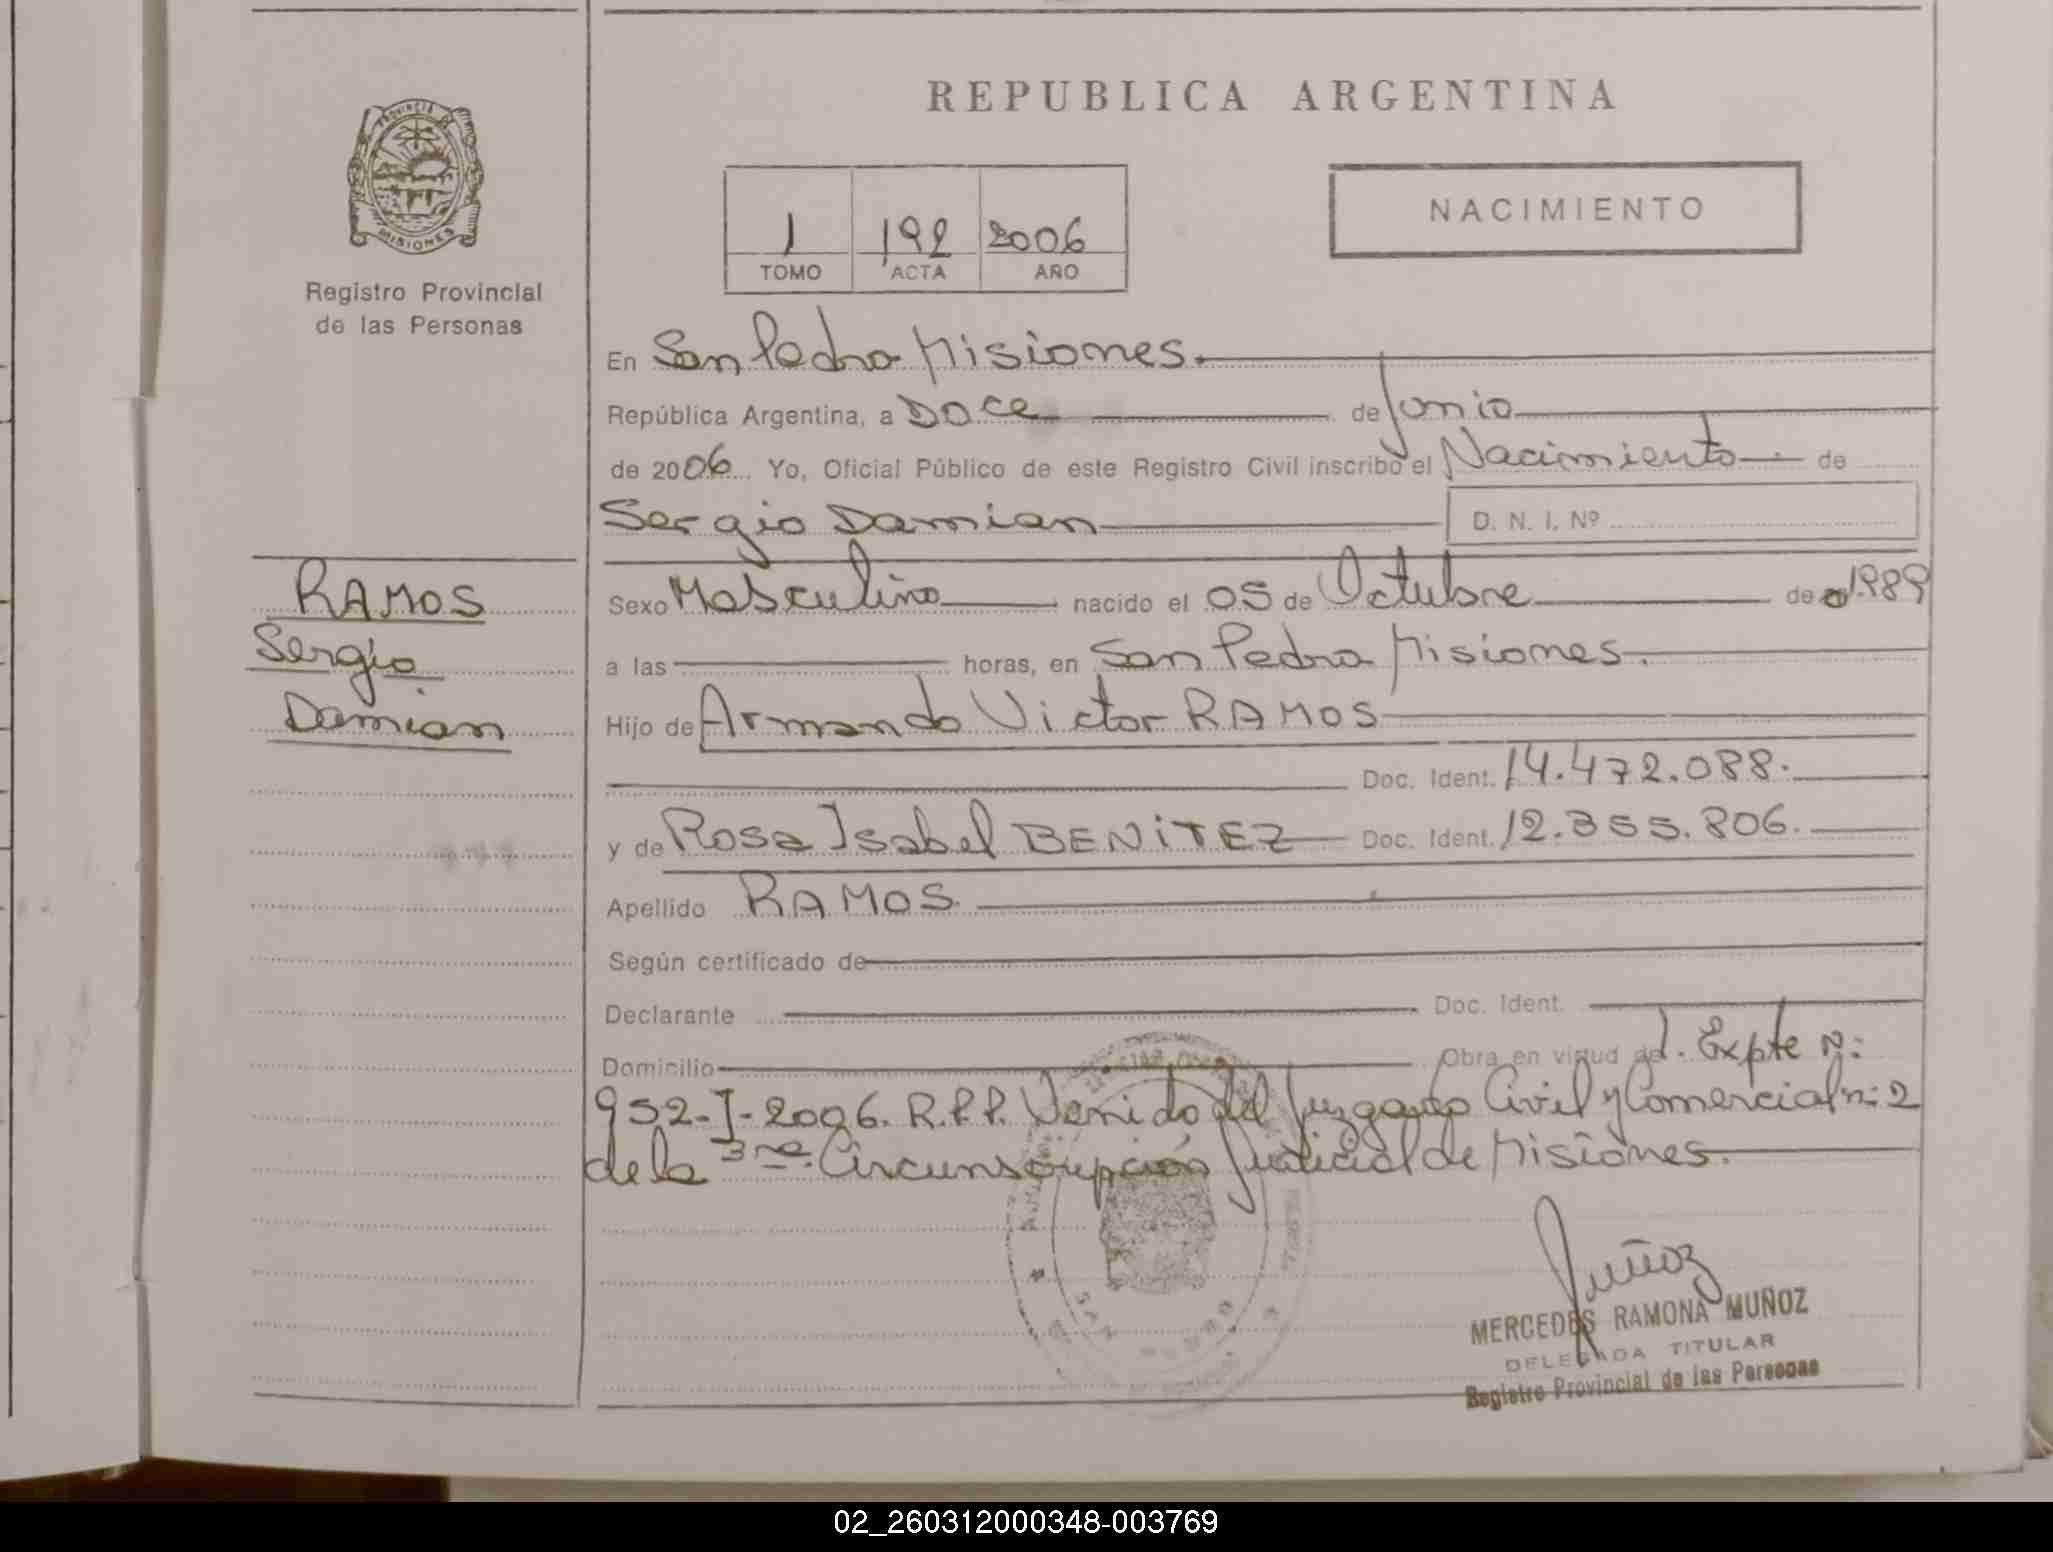 REPUBLICA ARGENTINA
PROVINCIA DE
MISIONES
Registro Provincial
de las Personas
NACIMIENTO
1 192 2006
TOMO ACTA AÑO
En San Pedro Misiones.
República Argentina, a Doce de Junio
de 2006 Yo, Oficial Público de este Registro Civil inscribo el Nacimiento de
Sergio Damian D. N. I. Nº
RAMOS
Sergio
Damian
Sexo Masculino nacido el 05 de Octubre de 1989
a las horas, en San Pedro Misiones.
Hijo de Armando Victor RAMOS
Doc. Ident. 14.472.088.
y de Rosa Isabel BENiTEZ Doc. Ident. 12.355.806.
Apellido RAMOS
Según certificado de
Declarante Doc. Ident.
Domicilio Obra en virtud de l. Expte N:
952-I-2006. R.P.P. Venido del Juzgado Civil y Comercial n: 2
de la 3ra. Circunscripción Judicial de Misiones.
SAN PEDRO
Muñoz
MERCEDES RAMONA MUÑOZ
DELEGADA TITULAR
Registro Provincial de las Personas
02_260312000348-003769